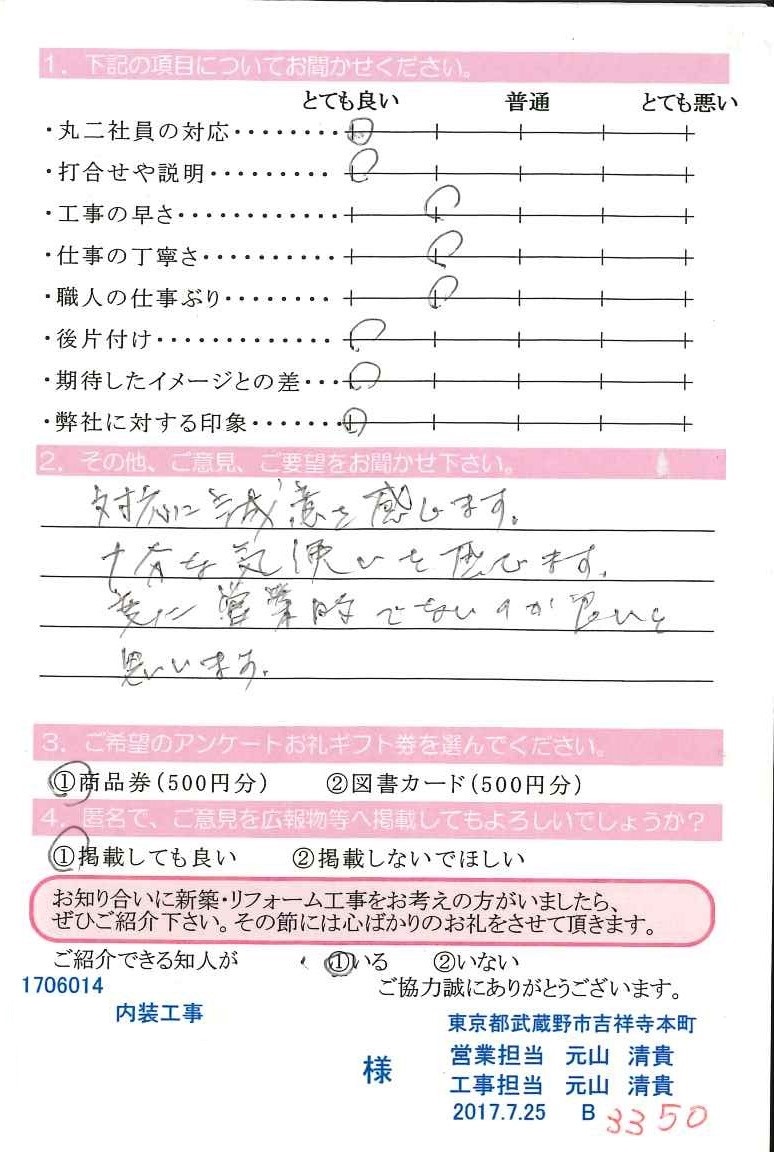 1. 下記の項目についてお聞かせください。
とても良い 普通 とても悪い
・丸二社員の対応・・・・・・・・
・打合せや説明・・・・・・・・・
・工事の早さ・・・・・・・・・・・・
・仕事の丁寧さ・・・・・・・・・・
・職人の仕事ぶり・・・・・・・・
・後片付け・・・・・・・・・・・・・
・期待したイメージとの差・・・
・弊社に対する印象・・・・・・・
2. その他、ご意見、ご要望をお聞かせ下さい。
対応に誠意を感じます。
十分な気使いを感じます。
変に営業的でないのが良いと
思います。
3. ご希望のアンケートお礼ギフト券を選んでください。
①商品券(500円分) ②図書カード(500円分)
4. 匿名で、ご意見を広報物等へ掲載してもよろしいでしょうか?
①掲載しても良い ②掲載しないでほしい
お知り合いに新築・リフォーム工事をお考えの方がいましたら、
ぜひご紹介下さい。その節には心ばかりのお礼をさせて頂きます。
ご紹介できる知人が ①いる ②いない
1706014 ご協力誠にありがとうございます。
内装工事
東京都武蔵野市吉祥寺本町
様 営業担当 元山 清貴
工事担当 元山 清貴
2017.7.25 B 3350